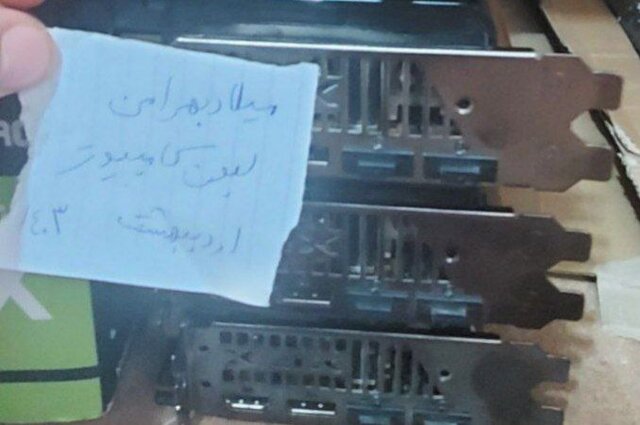 میلاد بهرامن
لیون کامپیوتر
اردیبهشت ۱۴۰۳
X